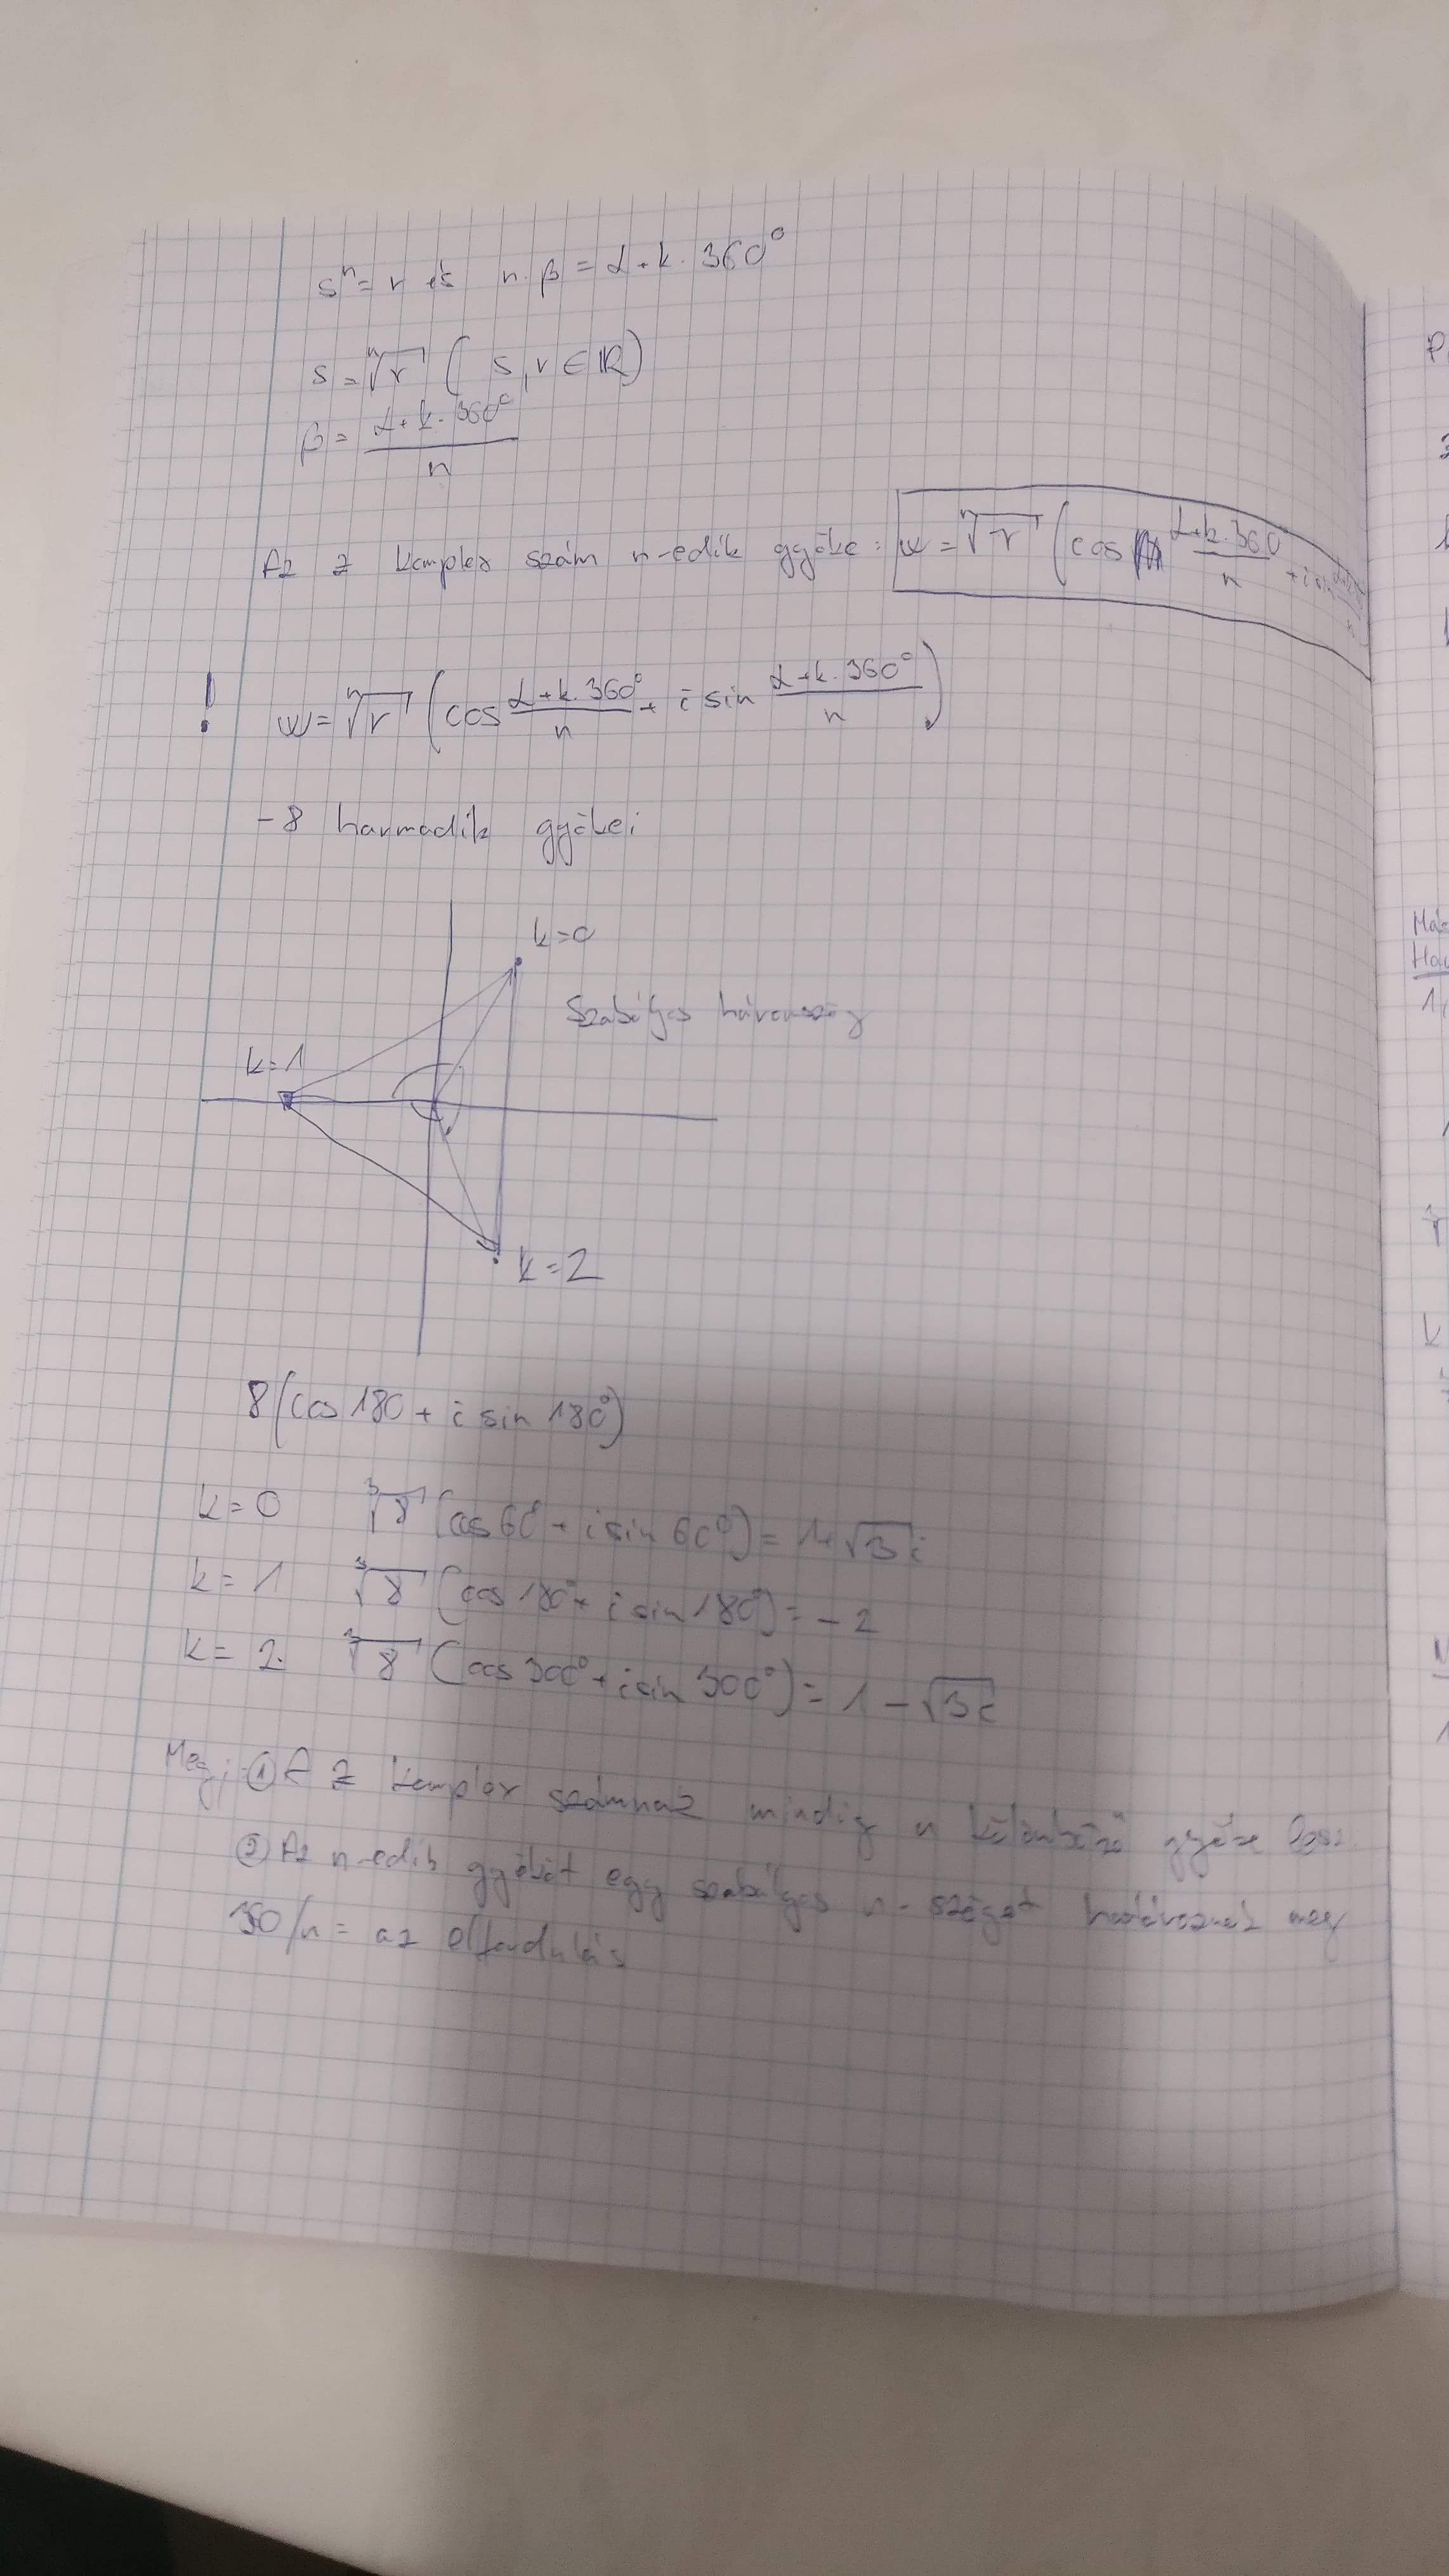 sⁿ = r és n·β = α + k·360°
s = ⁿ√r ( s, r ∈ ℝ)
β = (α + k·360°)/n
Az z komplex szám n-edik gyöke: w = ⁿ√r (cos (α+k·360)/n + i sin
! w = ⁿ√r (cos (α+k·360°)/n + i sin (α+k·360°)/n)
-8 harmadik gyökei
k=0
Szabályos háromszög
k=1
k=2
8(cos 180 + i sin 180°)
k = 0 ³√8 (cos 60° + i sin 60°) = 1+√3i
k = 1 ³√8 (cos 180° + i sin 180°) = -2
k = 2. ³√8 (cos 300° + i sin 300°) = 1 - √3i
Megj: ① A z komplex számnak mindig n különböző gyöke lesz.
② Az n-edik gyököt egy szabályos n-szöget határoznak meg
/n = az elfordulás